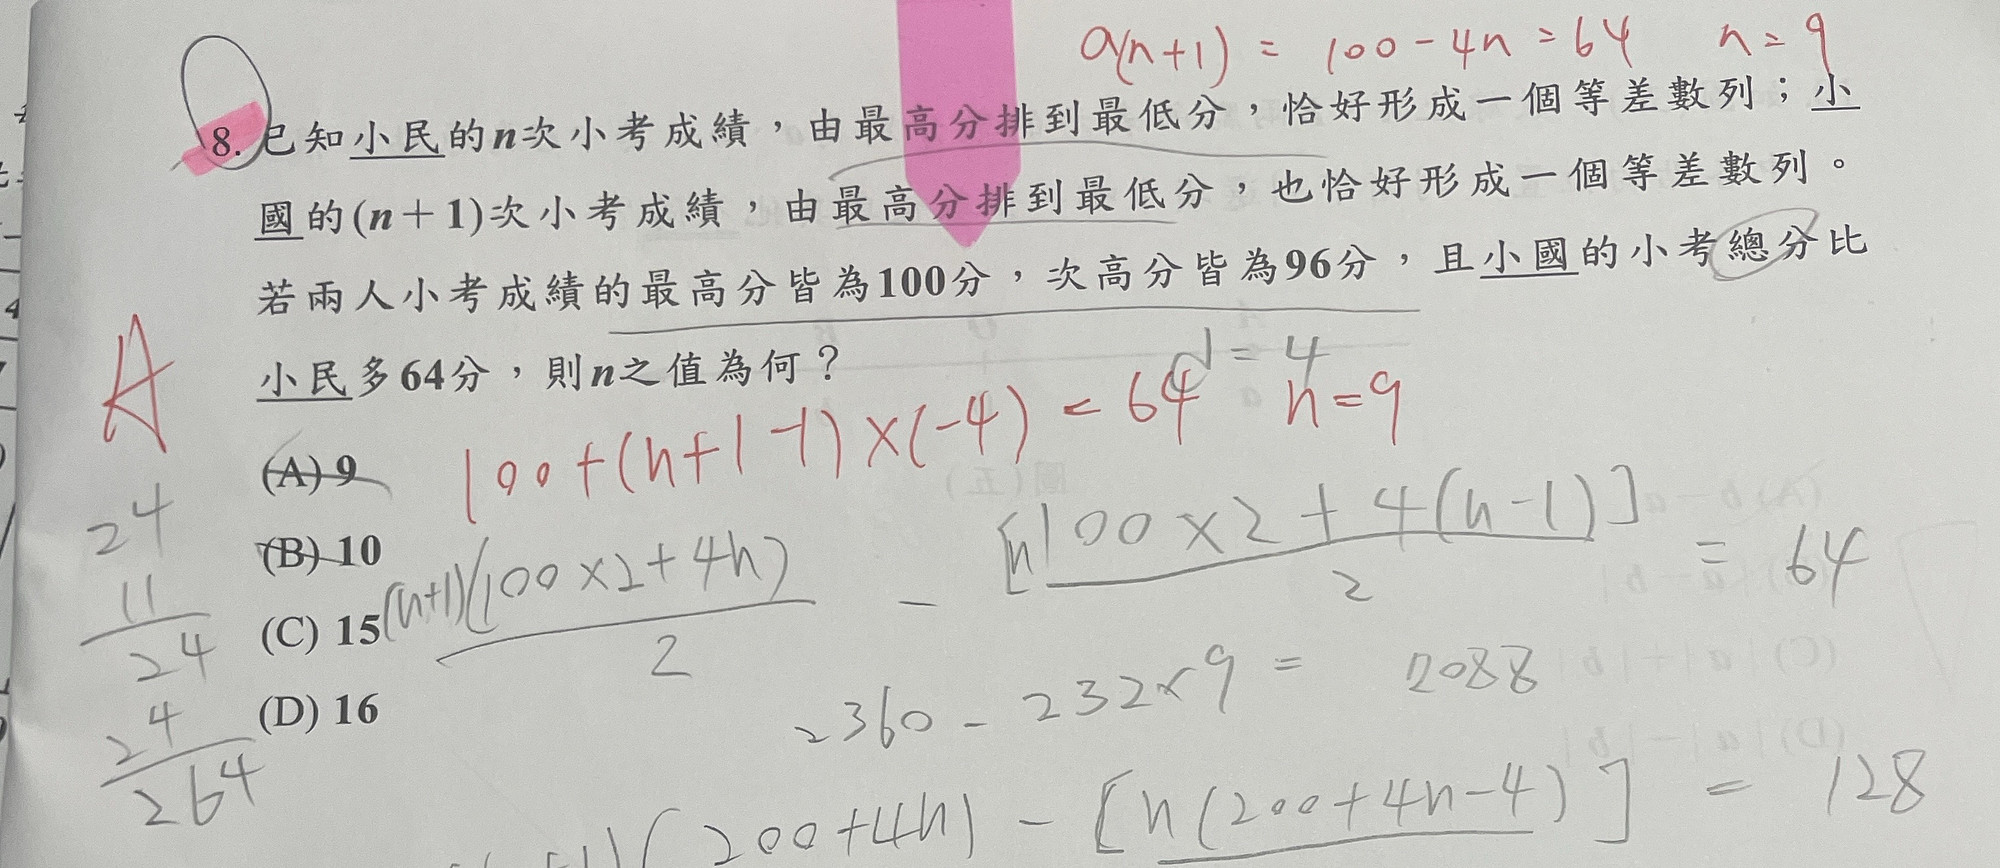 a(n+1) = 100-4n=64 n=9
8. 已知小民的n次小考成績，由最高分排到最低分，恰好形成一個等差數列；小
國的(n+1)次小考成績，由最高分排到最低分，也恰好形成一個等差數列。
若兩人小考成績的最高分皆為100分，次高分皆為96分，且小國的小考總分比
小民多64分，則n之值為何？
d=4
A
100+(n+1-1)×(-4)=64 n=9
(A) 9
(B) 10
(C) 15
(D) 16
(n+1)(100×2+4n)
2
-
[n100×2+4(n-1)]
2
= 64
24
11
24
24
264
2360-232×9= 2088
(200+4n) - [n(200+4n-4)] = 128